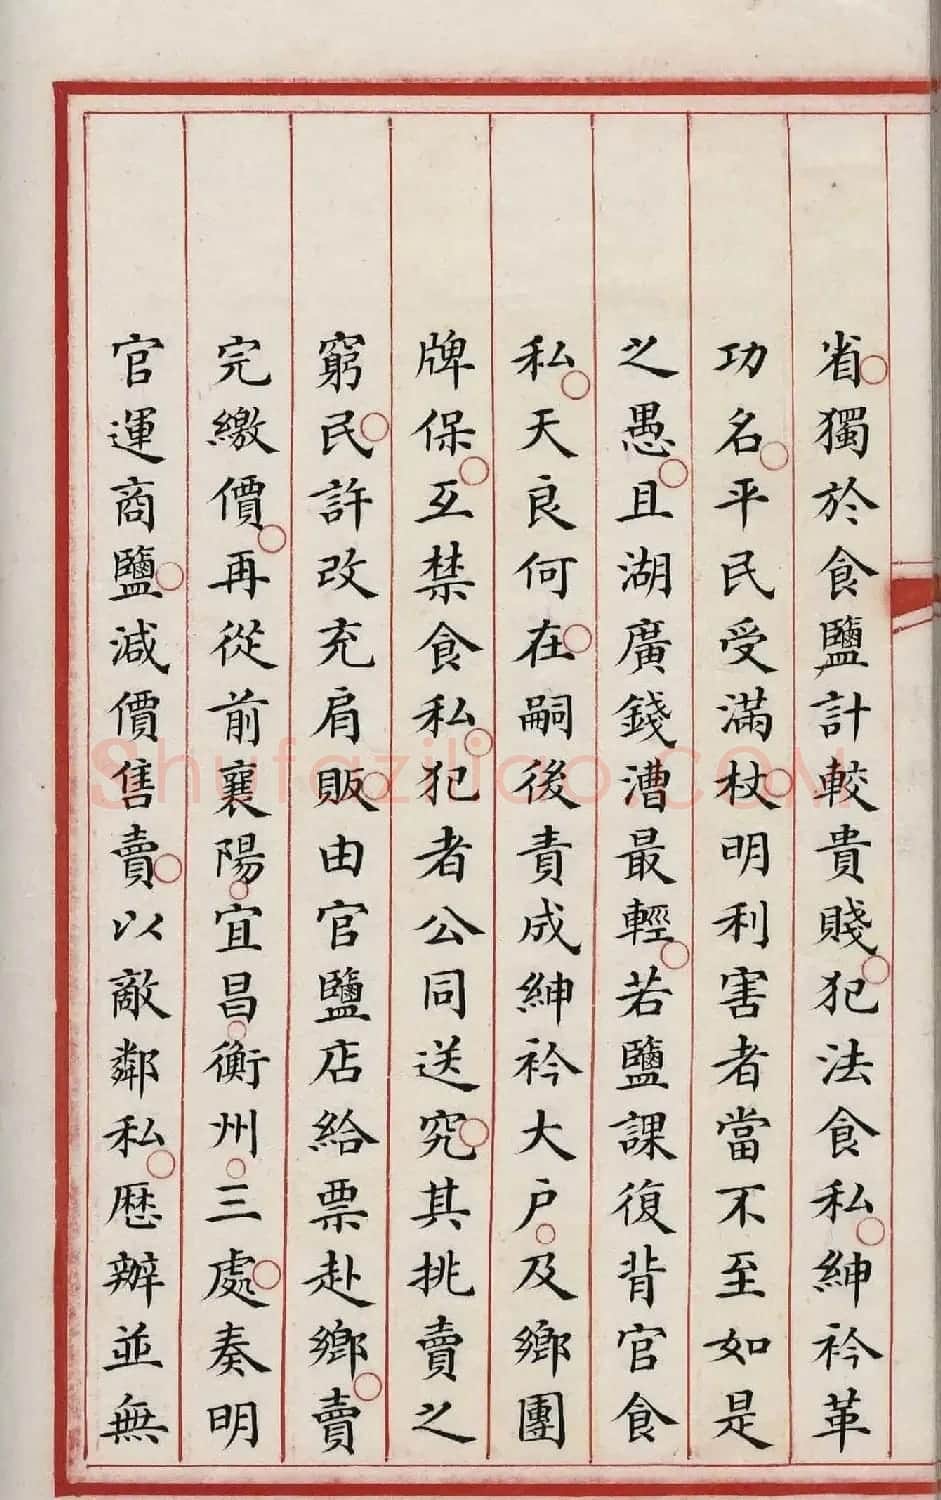 省獨於食鹽計較貴賤犯法食私紳衿革
功名平民受滿杖明利害者當不至如是
之愚且湖廣錢漕最輕若鹽課復背官食
私天良何在嗣後責成紳衿大户及鄉團
牌保互禁食私犯者公同送究其挑賣之
窮民許改充肩販由官鹽店給票赴鄉賣
完繳價再從前襄陽宜昌衡州三處奏明
官運商鹽減價售賣以敵鄰私歷辦並無
Shufaziliao.COM